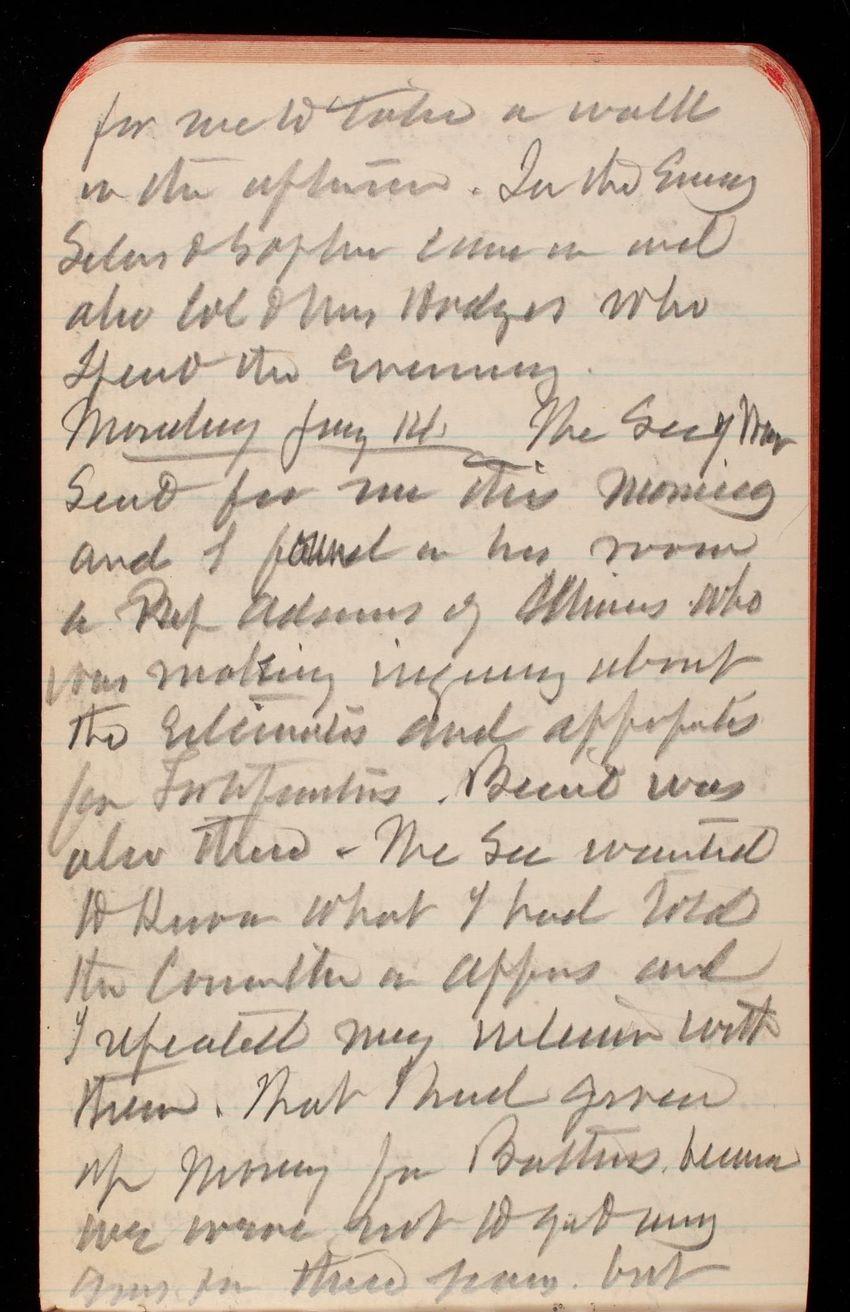 for me to take a walk
in the afternoon. In the Eveng
Silas & Sophie came in and
also Col & Mrs Hodges who
Spent the Evening.
Monday Jany 14. The Secy War
Send for me this morning
and I found in his room
a Rep Adams of Illinois who
was making inquiry about
the Estimates and appropts
for Fortifications. Benét was
also there - The Sec wanted
to know what I had told
the Committee on Appns and
I repeated my interview with
them. That I had given
up money for Batteries because
we were not to get any
Guns for three years. but